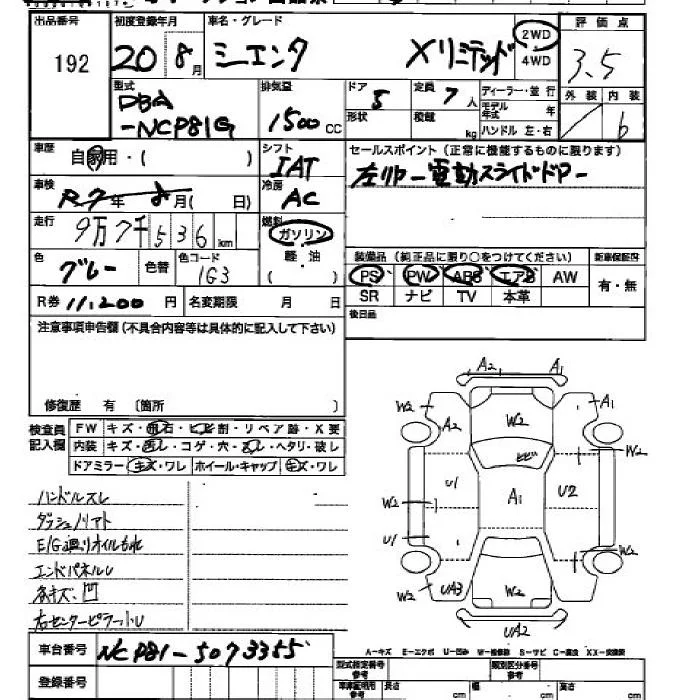 出品番号 初度登録年月 車名・グレード 評価点
192 20 8月 シーエンタ Xリミテッド 2WD 4WD 3.5
型式 排気量 ドア 定員 ディーラー・並行 外装 内装
DBA-NCP81G 1500CC 5 7人 モデル年式 年 6
形状 積載 kg ハンドル 左・右
車歴 自家用・( ) シフト IAT セールスポイント(正常に機能するものに限ります)
車検 R7年8月( 日) 冷房 AC 左リヤー電動スライドドアー
走行 9万7千536km 燃料 ガソリン 軽油 ( )
色 グレー 色替 色コード 1G3 装備品(純正品に限り○をつけてください) 新車保証書
PS PW ABS エアB AW 有・無
SR ナビ TV 本革
R券 11,200円 名変期限 月 日 後日品
注意事項申告欄(不具合内容等は具体的に記入して下さい)
修復歴 有 〔箇所 〕
検査員記入欄 FW キズ・飛石・ヒビ・割・リペア跡・X要
内装 キズ・汚レ・コゲ・穴・スレ・ヘタリ・破レ
ドアミラー キズ・ワレ ホイール・キャップ キズ・ワレ
ハンドルスレ
ダッシュノリアト
E/G廻リオイルもれ
エンドパネルU
各キズ、凹
右センターピラーU
A2 A1
W2 A2 W2 A1
ヒビ W2
U1 A1 U2
W2
U1 W2
W2 UA3 W2 W2
UA2
A-キズ E-エクボ U-凹み W-補修跡 S-サビ C-腐食 XX-交換済
車台番号 NCP81-5073355
登録番号
型式指定番号 参考 類別区分番号 参考
車庫証明用 参考 長さ cm 幅 cm 高さ cm